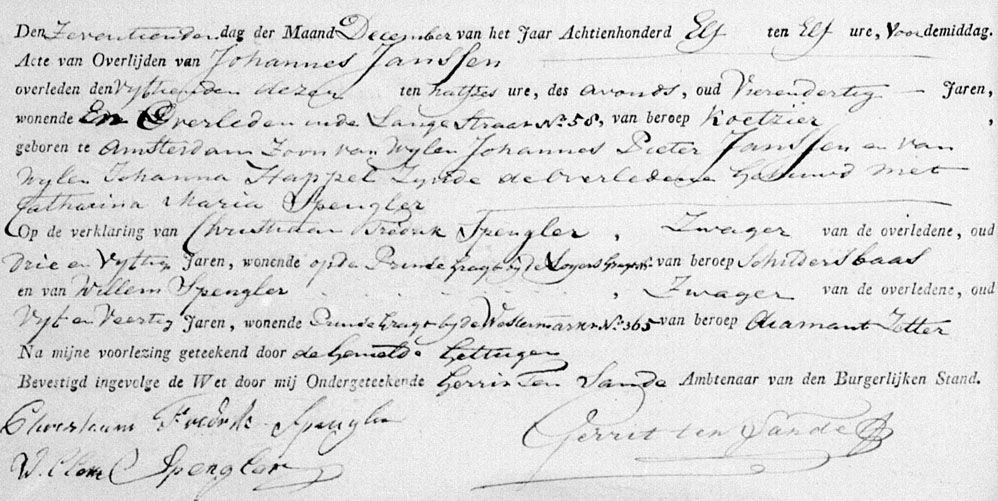 Den Zeventienden dag der Maand December van het Jaar Achtienhonderd Elf ten Elf ure, Voordemiddag.
Acte van Overlijden van Johannes Janssen
overleden den vyftienden dezer ten halfzes ure, des avonds, oud Vierendertig Jaren,
wonende En Overleden inde Lange Straat No. 58, van beroep Koetzier,
geboren te Amsterdam Zoon van Wylen Johannes Pieter Janssen en van
Wylen Johanna Happel Zynde de Overledene Gehuwd met
Catharina Maria Spengler
Op de verklaring van Christiaan Fredrik Spengler, Zwager van de overledene, oud
Drie en Vyftig Jaren, wonende opde Prinse Gragt bij de van beroep Schildersbaas
en van Willem Spengler, Zwager van de overledene, oud
Vyf en Veertig Jaren, wonende Prinse Gragt bij de Westermarkt No. 365 van beroep diamant Zetter
Na mijne voorlezing geteekend door de Gemelde Getuigen
Bevestigd ingevolge de Wet door mij Ondergeteekende Gerrit ten Sande Ambtenaar van den Burgerlijken Stand.
Fredrik Spengler
Gerrit ten Sande
W. Spengler